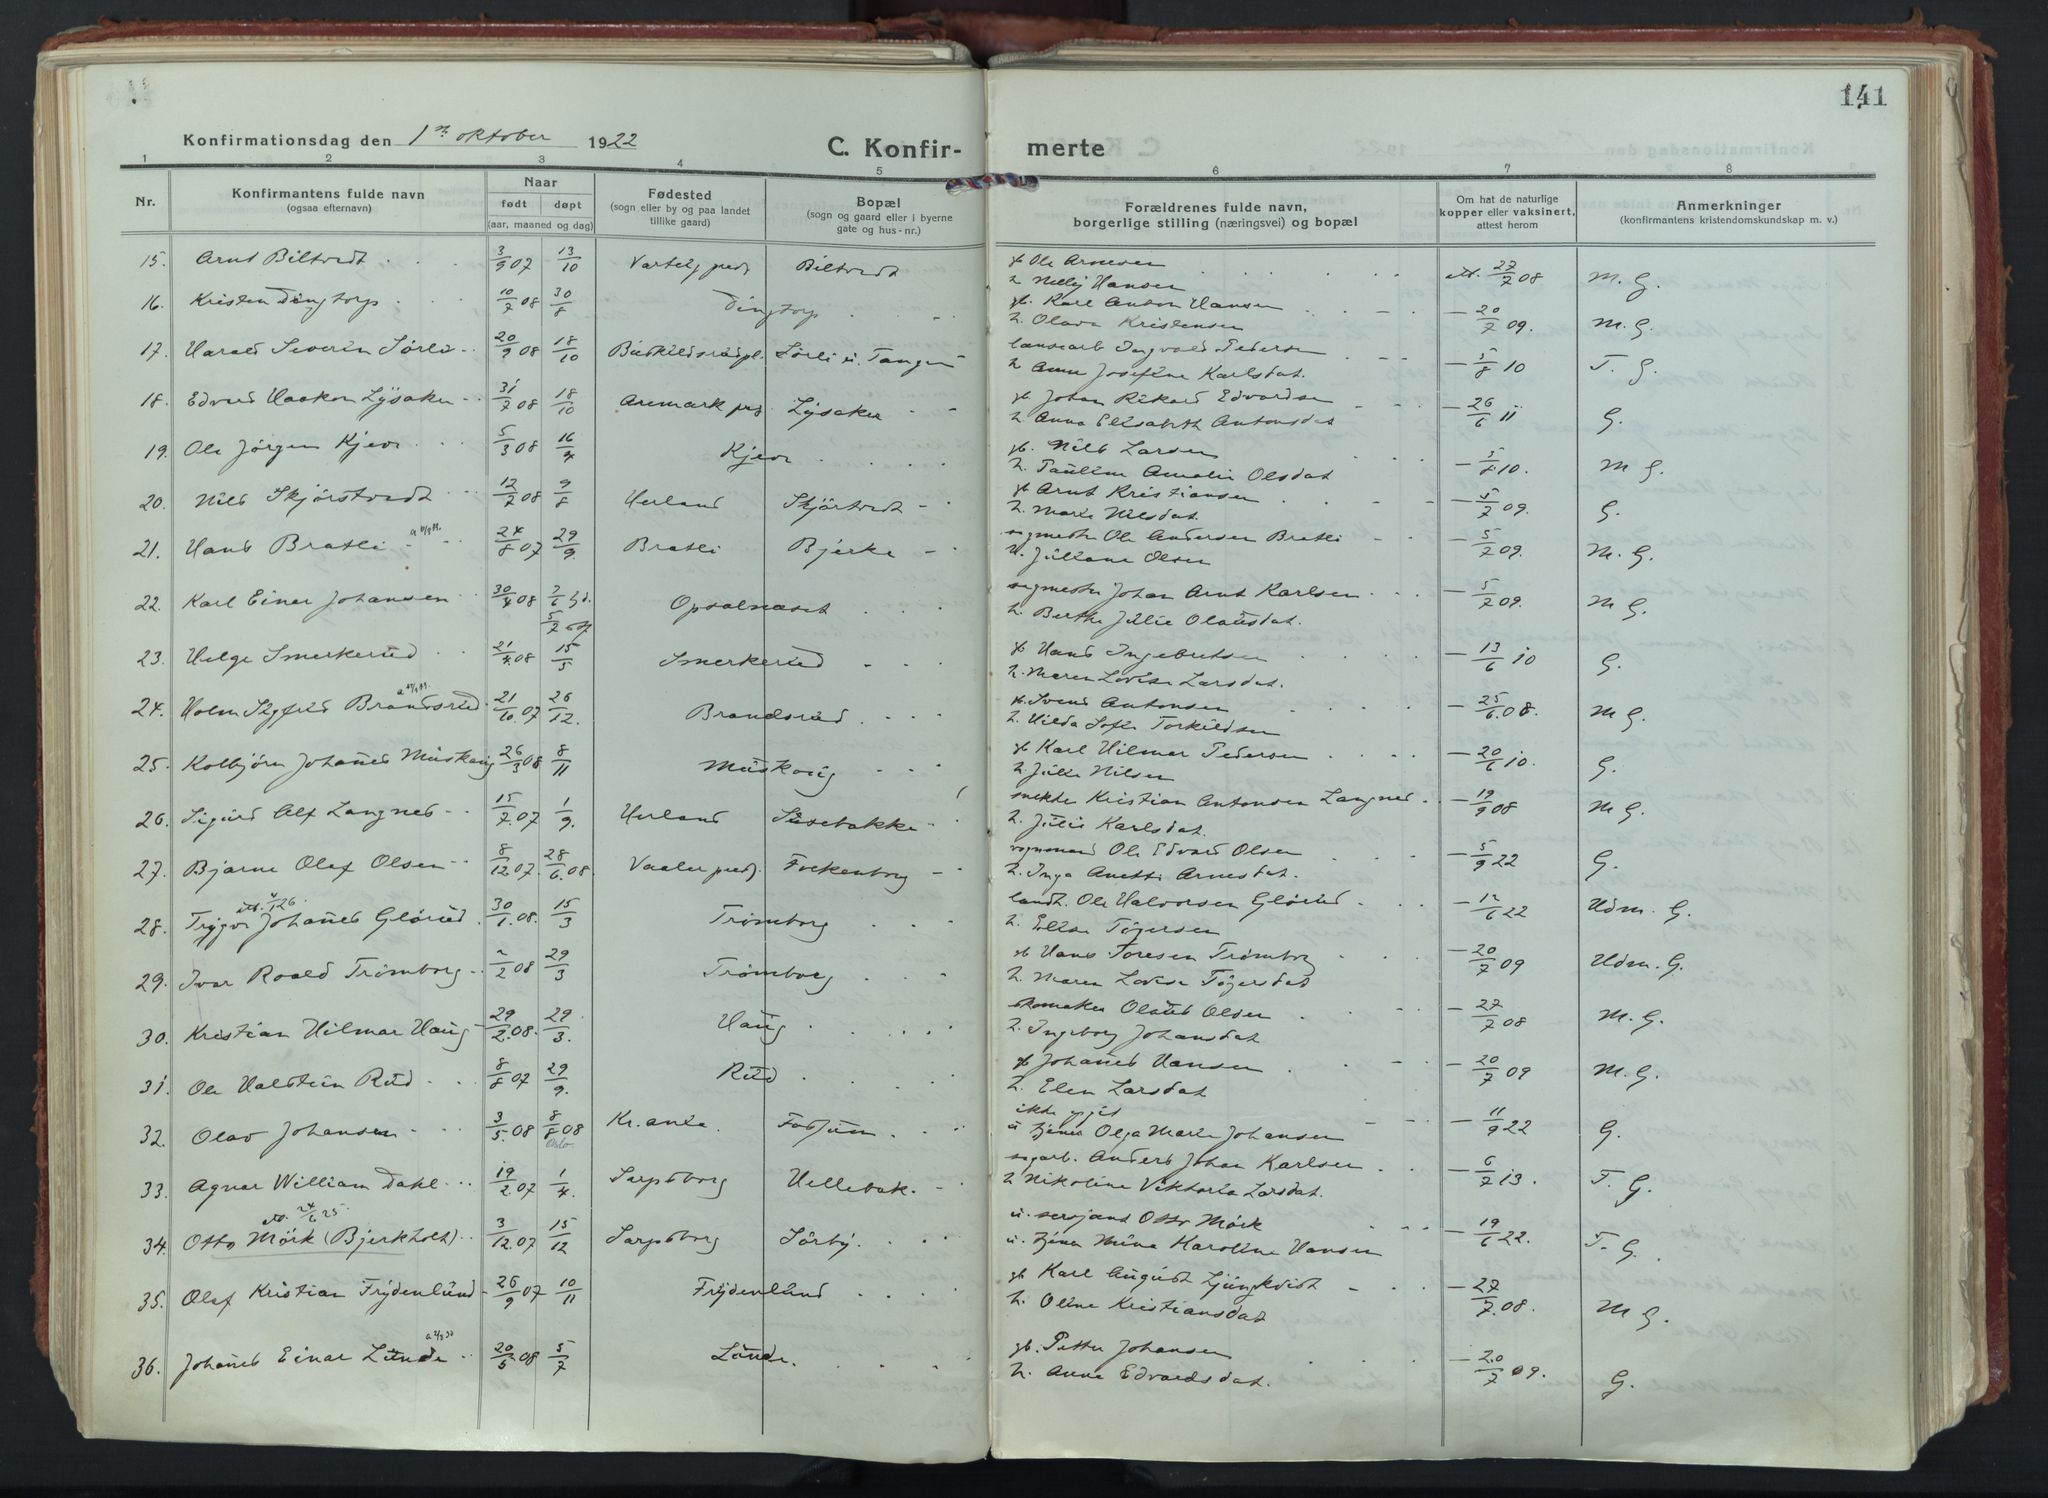 141
Konfirmationsdag den 1ste oktober 1922
C. Konfir-merte
1 2 3 4 5 6 7 8
Nr. Konfirmantens fulde navn (ogsaa efternavn) Naar født døpt (aar, maaned og dag) Fødested (sogn eller by og paa landet tillike gaard) Bopæl (sogn og gaard eller i byerne gate og hus-nr.) Forældrenes fulde navn, borgerlige stilling (næringsvei) og bopæl Om hat de naturlige kopper eller vaksinert, attest herom Anmerkninger (konfirmantens kristendomskundskap m. v.)
15. Arnt Biltvedt 3/9 07 13/10 Varteig Biltvedt Ole Arnesen att. 27/7 08 M. G.
h. Nelly Hansen
16. Kristen Dingtorp 10/7 08 30/8 Dingtorp gb. Karl Anton Hansen – 20/7 09. M. G.
h. Olava Kristensen
17. Harald Severin Sørli 20/9 08 18/10 Sørli u. Tangen Ingvald Pedersen – 5/8 10 T. G.
h. Anne Josefine Karlsdat.
18. Edvard Haakon Lysaker 31/7 08 18/10 Aremark Lysaker Johan Rikard Edvardsen – 26/6 11 G.
h. Anna Elisabeth Antonsdat
19. Ole Jörgen Kjeve 5/3 08 16/4 Kjeve gb. Nils Larsen – 5/8 10. M G.
h. Pauline Amalie Olsdat
20. Nils Skjörstvedt 12/7 08 9/8 Herland Skjörtvedt Arnt Kristiansen – 5/7 09. G.
h. Marie Nilsdat.
21. Hans Bratli 24/8 07 29/9 Bratli Bjerke sagmester Ole Andersen Bratli – 5/7 09. M. G.
h. Juliane Olsen
22. Karl Einar Johansen 30/4 08 7/6 5/7 Opsalnæset sagmester Johan Arnt Karlsen – 5/7 09. M G.
h. Berthe Julie Olausdat.
23. Helge Smerkerud 21/4 08 15/5 Smerkerud Hans Ingebretsen – 13/6 10 G.
h. Maren Lovise Larsdat.
24. Holm Sigfred Brandsrud 21/10 07 26/12. Brandsrud Svend Antonsen – 25/6. 08. M G.
h. Hilda Sofie Torkildsen
25. Kolbjörn Johanes Muskaug 26/3 08 8/11 Muskaug Karl Hilmar Pedersen – 20/6 10. G.
h. Julie Nilsen
26. Sigurd Alf Langnes 15/7. 07 1/9. Herland Susebakke Kristian Antonsen Langnes – 19/9 08 M G.
h. Julie Karlsdat.
27. Bjarne Olaf Olsen 8/12. 07. 28/6. 08. Vaaler Folkenborg vognmand Ole Edvard Olsen – 5/9 22 G.
h. Inga Anette Arnesdat.
28. Trygve Johanes Glörud 30/1. 08. 15/3 Trömborg landh. Ole Halvorsen Glörud – 12/6 22 Udm. G.
h. Elise Tögersen
29. Ivar Roald Trömborg 2/2 08 29/3 Trömborg gb Hans Toresen Trömborg – 20/7 09 Udm. G.
h. Maren Lovise Tögersdat
30. Kristian Hilmar Haug 29/2. 08. 29/3. Haug skomaker Olaus Olsen – 27/7 08 M. G.
h. Ingeborg Johansdat
31. Ole Halstein Rud 8/8 07 29/9. Rud gb Johanes Hansen – 20/7 09 M. G.
h. Elen Larsdat
32. Olav Johansen 3/5 08 8/8 08 Oslo Kr. ania. Fosjum ikke opgit – 11/9 22 G.
u tjener Olga Marie Johansen
33. Agnar William Dahl 19/2. 07 1/4. Sarpsborg Hellebak. sagarb. Anders Johan Karlsen – 6/7 13. T. G.
h Nikoline Viktoria Larsdat.
att. 24/6 25
34. Otto Mörk (Bjerkholt) 3/12. 07 15/12 Sarpsborg Sörby. u. sersjant Otto Mörk – 19/6 22. T. G.
u. tjener Mina Karoline Hansen
35. Olaf Kristian Frydenlund 26/9 07 10/11 Frydenlund gb Karl August Ljungkvist – 27/7. 08. M G.
h. Oline Kristiansdat
36. Johanes Einar Lunde 20/5 08 5/7 Lunde. gb. Petter Johansen – 20/7 09. G.
h. Anne Edvardsdat.